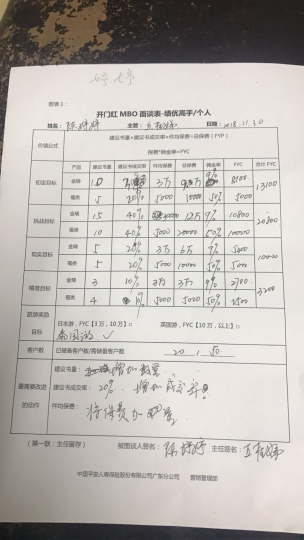 婷婷
附表1：
开门红 MBO 面谈表-绩优高手/个人
姓名：陈婷婷 主管： 日期：2018.11.30
价值公式 建议书量×建议书成交率×件均保费=总保费（FYP）
保费*佣金率=FYC
产品 建议书量 建议书成交率 件均保费 总保费 佣金率 FYC 合计FYC
初定目标 金瑞 10 3万 9万 9% 8100 13100
福类 5 20% 5000 5000 50% 5000
挑战目标 金瑞 15 40% 12万 9% 10800 20800
福类 10 40% 5000 20000 50% 10000
现实目标 金瑞 5 20% 3万 6万 9% 5000
福类 5 20% 5000 10000 50% 5000
精准目标 金瑞 3 10% 3万 3万 9% 2700 3200
福类 4 10% 5000 5000 50% 2500
旅游奖励目标 日本游，FYC【3万，10万】□ 英国游，FYC【10万，以上】□
泰国游 ✓
客户数 已储备客户数/需储备客户数 20 50
最需要改进的动作 建议书量： 增加数量
建议书成交率： 20%. 增加成交率
件均保费： 将保费加
（第一联：主任留存） 被面谈人签名：陈婷婷 主任签名：
中国平安人寿保险股份有限公司广东分公司 营销管理部